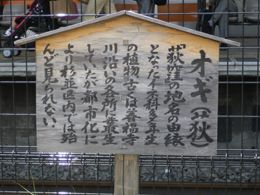 オギ（荻）
「荻窪」の地名の由縁
となったイネ科多年生
の植物。古くは善福寺
川沿いの各所に叢生
していたが都市化に
より杉並区内では殆
んど見られない。